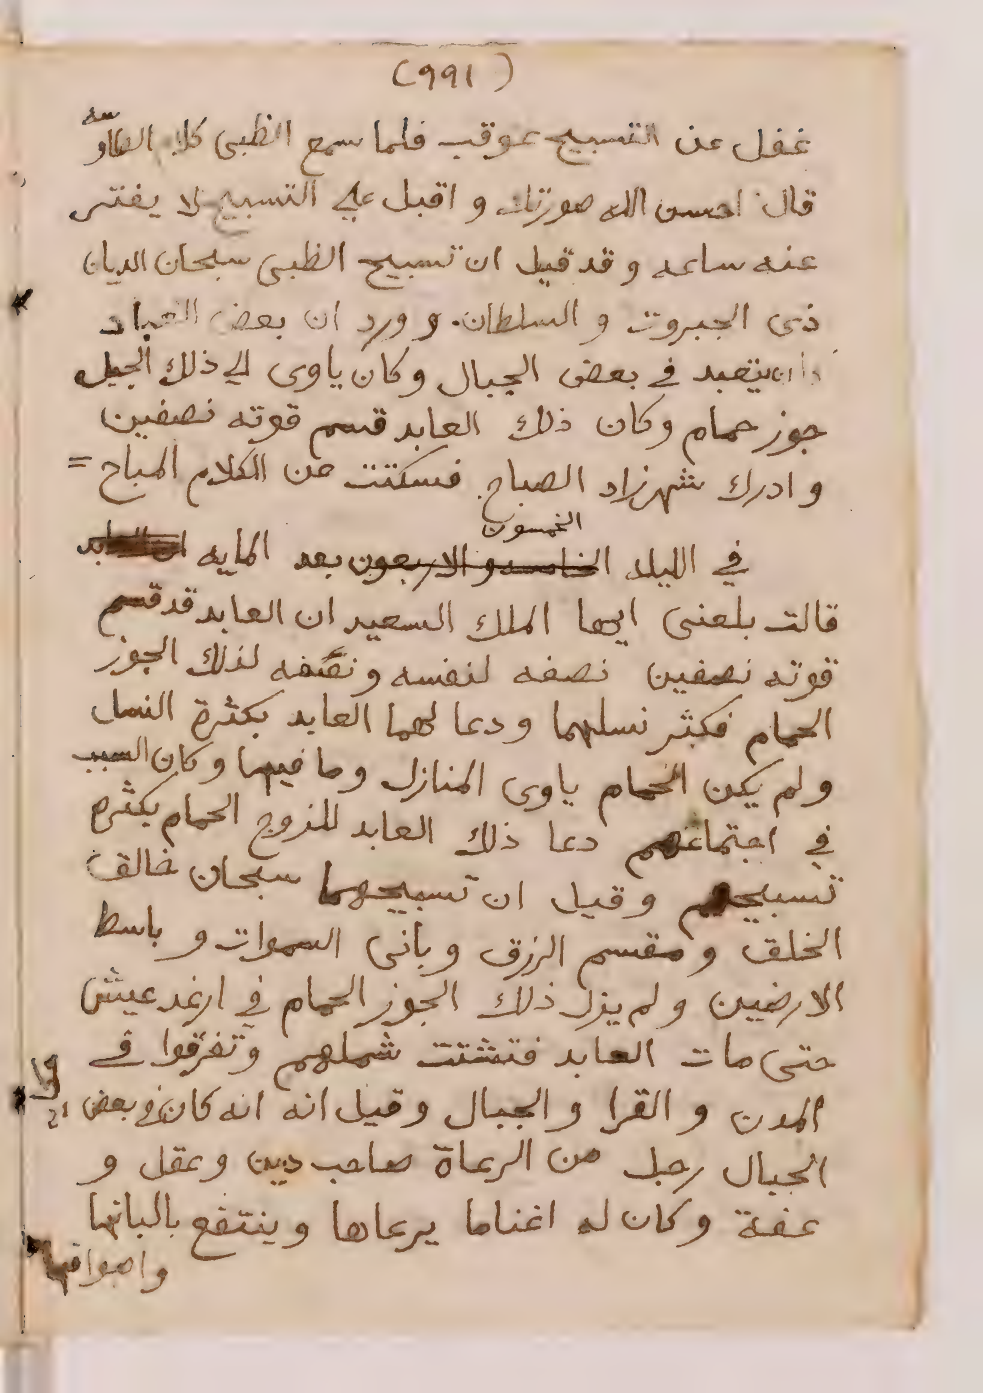 (٩٩١)
غفل عن التسبيح عوقب فلما سمع الظبى كلام الطاوسه
قال احسن الله صورتك و اقبل على التسبيح لا يفتر
عنه ساعه و قد قيل ان تسبيح الظبى سبحان الديان
ذى الجبروت و السلطان. و ورد ان بعض العباد
كان يتعبد في بعض الجبال وكان ياوى الي ذلك الجبل
جوز حمام وكان ذلك العابد قسم قوته نصفين
و ادرك شهرزاد الصباح فسكتت عن الكلام المباح =
الخمسون
في الليله الخامسه و الاربعون بعد المايه
قالت بلعنى ايها الملك السعيد ان العابد قد قسم
قوته نصفين نصفه لنفسه و نصفه لذلك الجوز
الحمام فكثر نسلهما و دعا لهما العابد بكثرة النسل
و لم يكن الحمام ياوى المنازل و ما فيها و كان السبب
في اجتماعهم دعا ذلك العابد للزوج الحمام بكثره
تسبيحهم وقيل ان تسبيحهما سبحان خالق
الخلق و مقسم الرزق و بانى السموات و باسط
الارضيين و لم يزل ذلك الجوز الحمام في ارغد عيش
حتى مات العابد فتشتت شملهم وتفرقوا في
المدن و القرا و الجبال وقيل انه انه كان في بعض
الجبال رجل من الرعاة صاحب دين و عقل و
عفة وكان له اغناما يرعاها و ينتفع بالبانها
و اصوافها